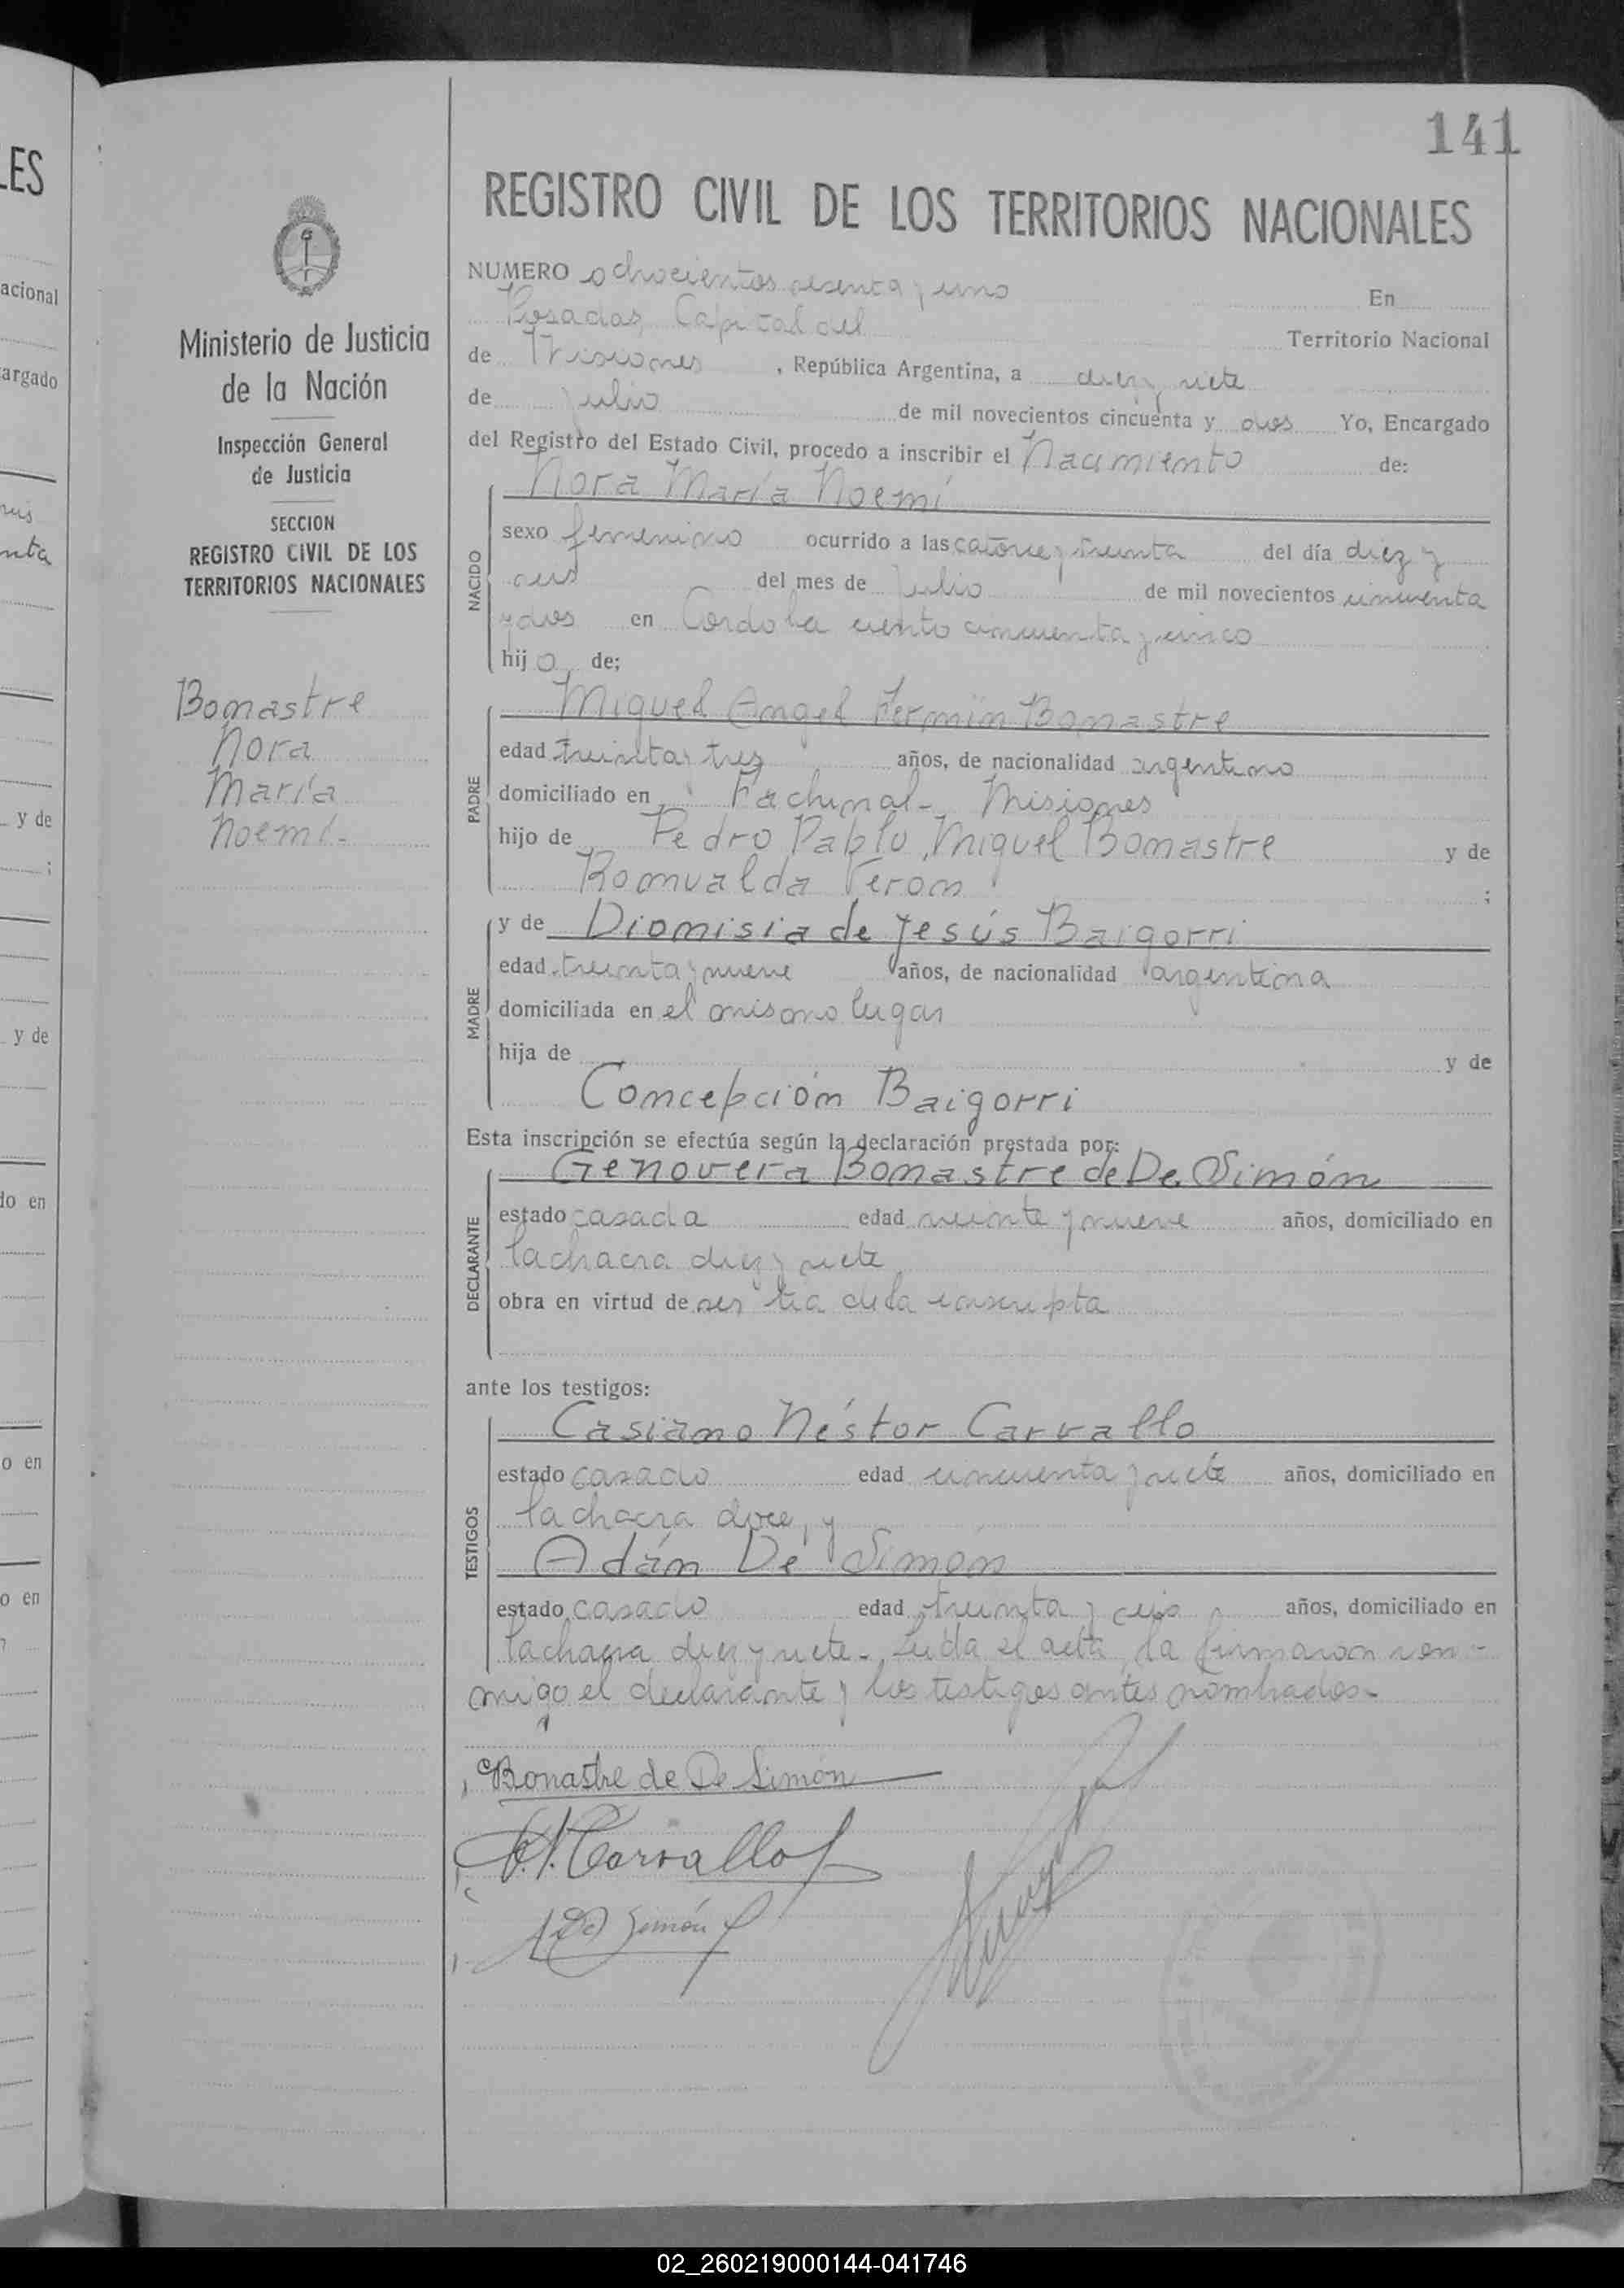 141
REGISTRO CIVIL DE LOS TERRITORIOS NACIONALES
NUMERO ochocientos sesenta y uno En
Posadas, Capital del Territorio Nacional
de Misiones, República Argentina, a diez y siete
de julio de mil novecientos cincuenta y dos Yo, Encargado
del Registro del Estado Civil, procedo a inscribir el Nacimiento de:
Nora María Noemí
NACIDO
sexo femenino ocurrido a las catorce y treinta del día diez y
seis del mes de julio de mil novecientos cincuenta
y dos en Cordoba ciento cincuenta y cinco
hij a de;
PADRE
Miguel Angel Fermín Bonastre
edad treinta y tres años, de nacionalidad argentino
domiciliado en Fachinal - Misiones
hijo de Pedro Pablo Miguel Bonastre y de
Romualda Veron ;
MADRE
y de Dionisia de Jesús Baigorri
edad treinta y nueve años, de nacionalidad argentina
domiciliada en el mismo lugar
hija de y de
Concepción Baigorri
Esta inscripción se efectúa según la declaración prestada por:
DECLARANTE
Genoveva Bonastre de De Simón
estado casada edad veinte y nueve años, domiciliado en
la chacra diez y siete
obra en virtud de ser tia de la inscripta
ante los testigos:
TESTIGOS
Casiano Néstor Carvallo
estado casado edad cincuenta y siete años, domiciliado en
la chacra doce, y
Adán De Simón
estado casado edad treinta y seis años, domiciliado en
la chacra diez y siete - Leida el acta, la firmaron con-
migo el declarante y los testigos antes nombrados -
Bonastre de De Simón
N. Carvallo
A De Simón
Ministerio de Justicia
de la Nación
Inspección General
de Justicia
SECCION
REGISTRO CIVIL DE LOS
TERRITORIOS NACIONALES
Bonastre
Nora
María
Noemí.-
LES
acional
argado
nta
y de
;
y de
do en
o en
o en
02_260219000144-041746